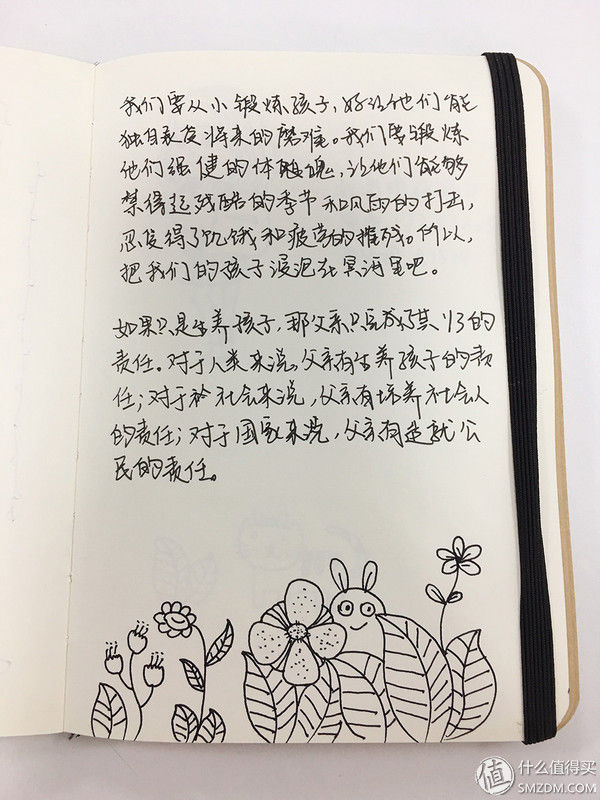 我们要从小锻炼孩子，好让他们能
独自承受将来的磨难。我们要锻炼
他们强健的体魄，让他们能够
禁得起残酷的季节和风雨的打击，
忍受得了饥饿和疲劳的摧残。所以，
把我们的孩子浸泡在冥河里吧。
如果只是生养孩子，那父亲只完成了其1/3的
责任。对于人类来说，父亲有生养孩子的责
任；对于社会来说，父亲有培养社会人
的责任；对于国家来说，父亲有造就公
民的责任。
值 什么值得买
SMZDM.COM